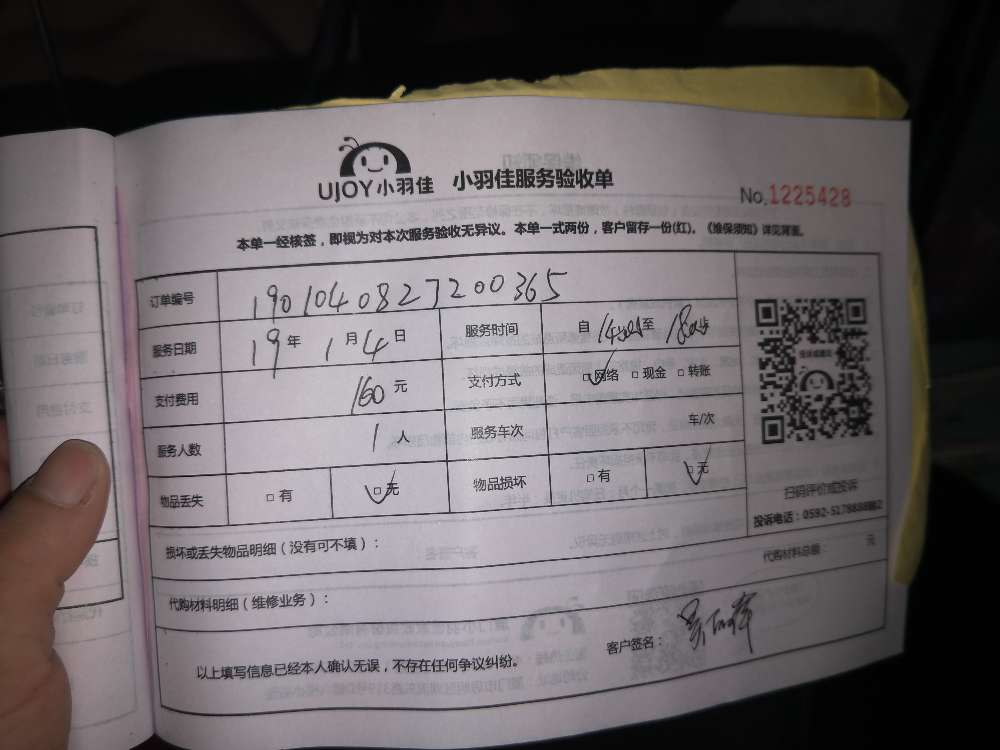 UJOY小羽佳 小羽佳服务验收单
No.1225428
本单一经核签，即视为对本次服务验收无异议。本单一式两份，客户留存一份(红)。《维保须知》详见背面。
订单编号 1901040827200365
服务日期 19年1月4日 服务时间 自 至
支付费用 160元 支付方式 □网络 □现金 □转账
服务人数 1人 服务车次 车/次
物品丢失 □有 □无 物品损坏 □有 □无
扫码评价或投诉
投诉电话：0592-5178888
损坏或丢失物品明细（没有可不填）：
代购材料明细（维修业务）： 代购材料总额： 元
以上填写信息已经本人确认无误，不存在任何争议纠纷。 客户签名：